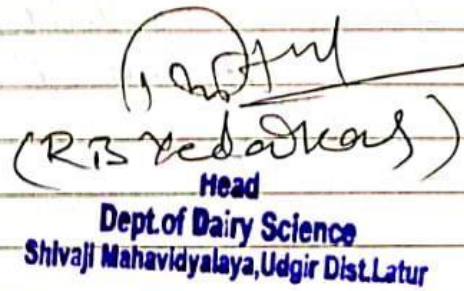 (RB Yedatkar)
Head
Dept.of Dairy Science
Shivaji Mahavidyalaya,Udgir Dist.Latur